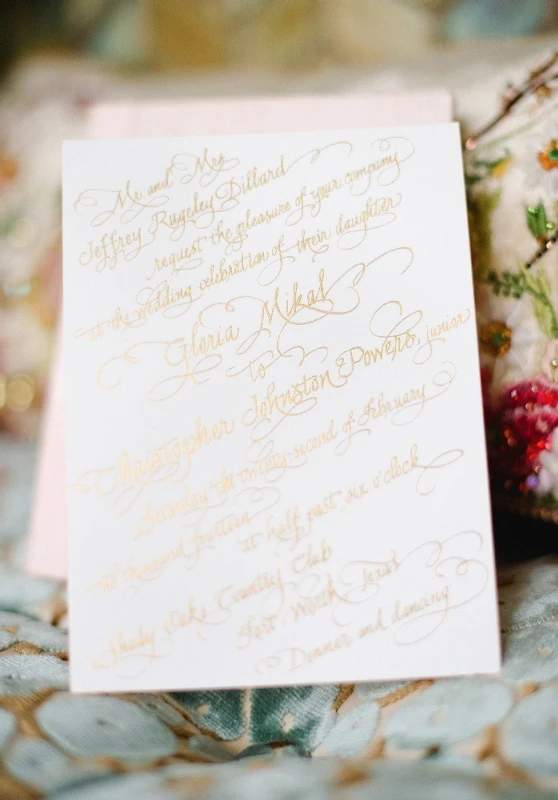 Mr and Mrs
Jeffrey Rugeley Dillard
request the pleasure of your company
at the wedding celebration of their daughter
Gloria Mikal
to
Christopher Johnston Powers, junior
Saturday the twenty-second of February
two thousand fourteen
at half past six o'clock
Shady Oaks Country Club
Fort Worth, Texas
Dinner and dancing